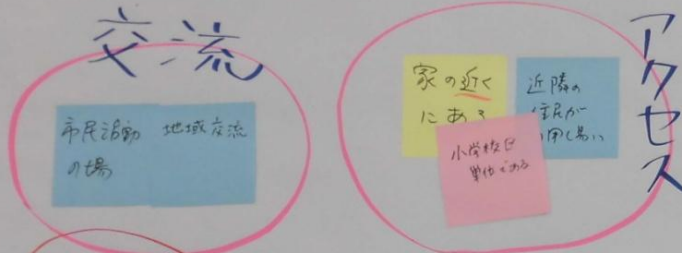 交流
市民活動
の場
地域交流
アクセス
家の近く
にある
近隣の
住民が
用し易い
小学校区
単位である